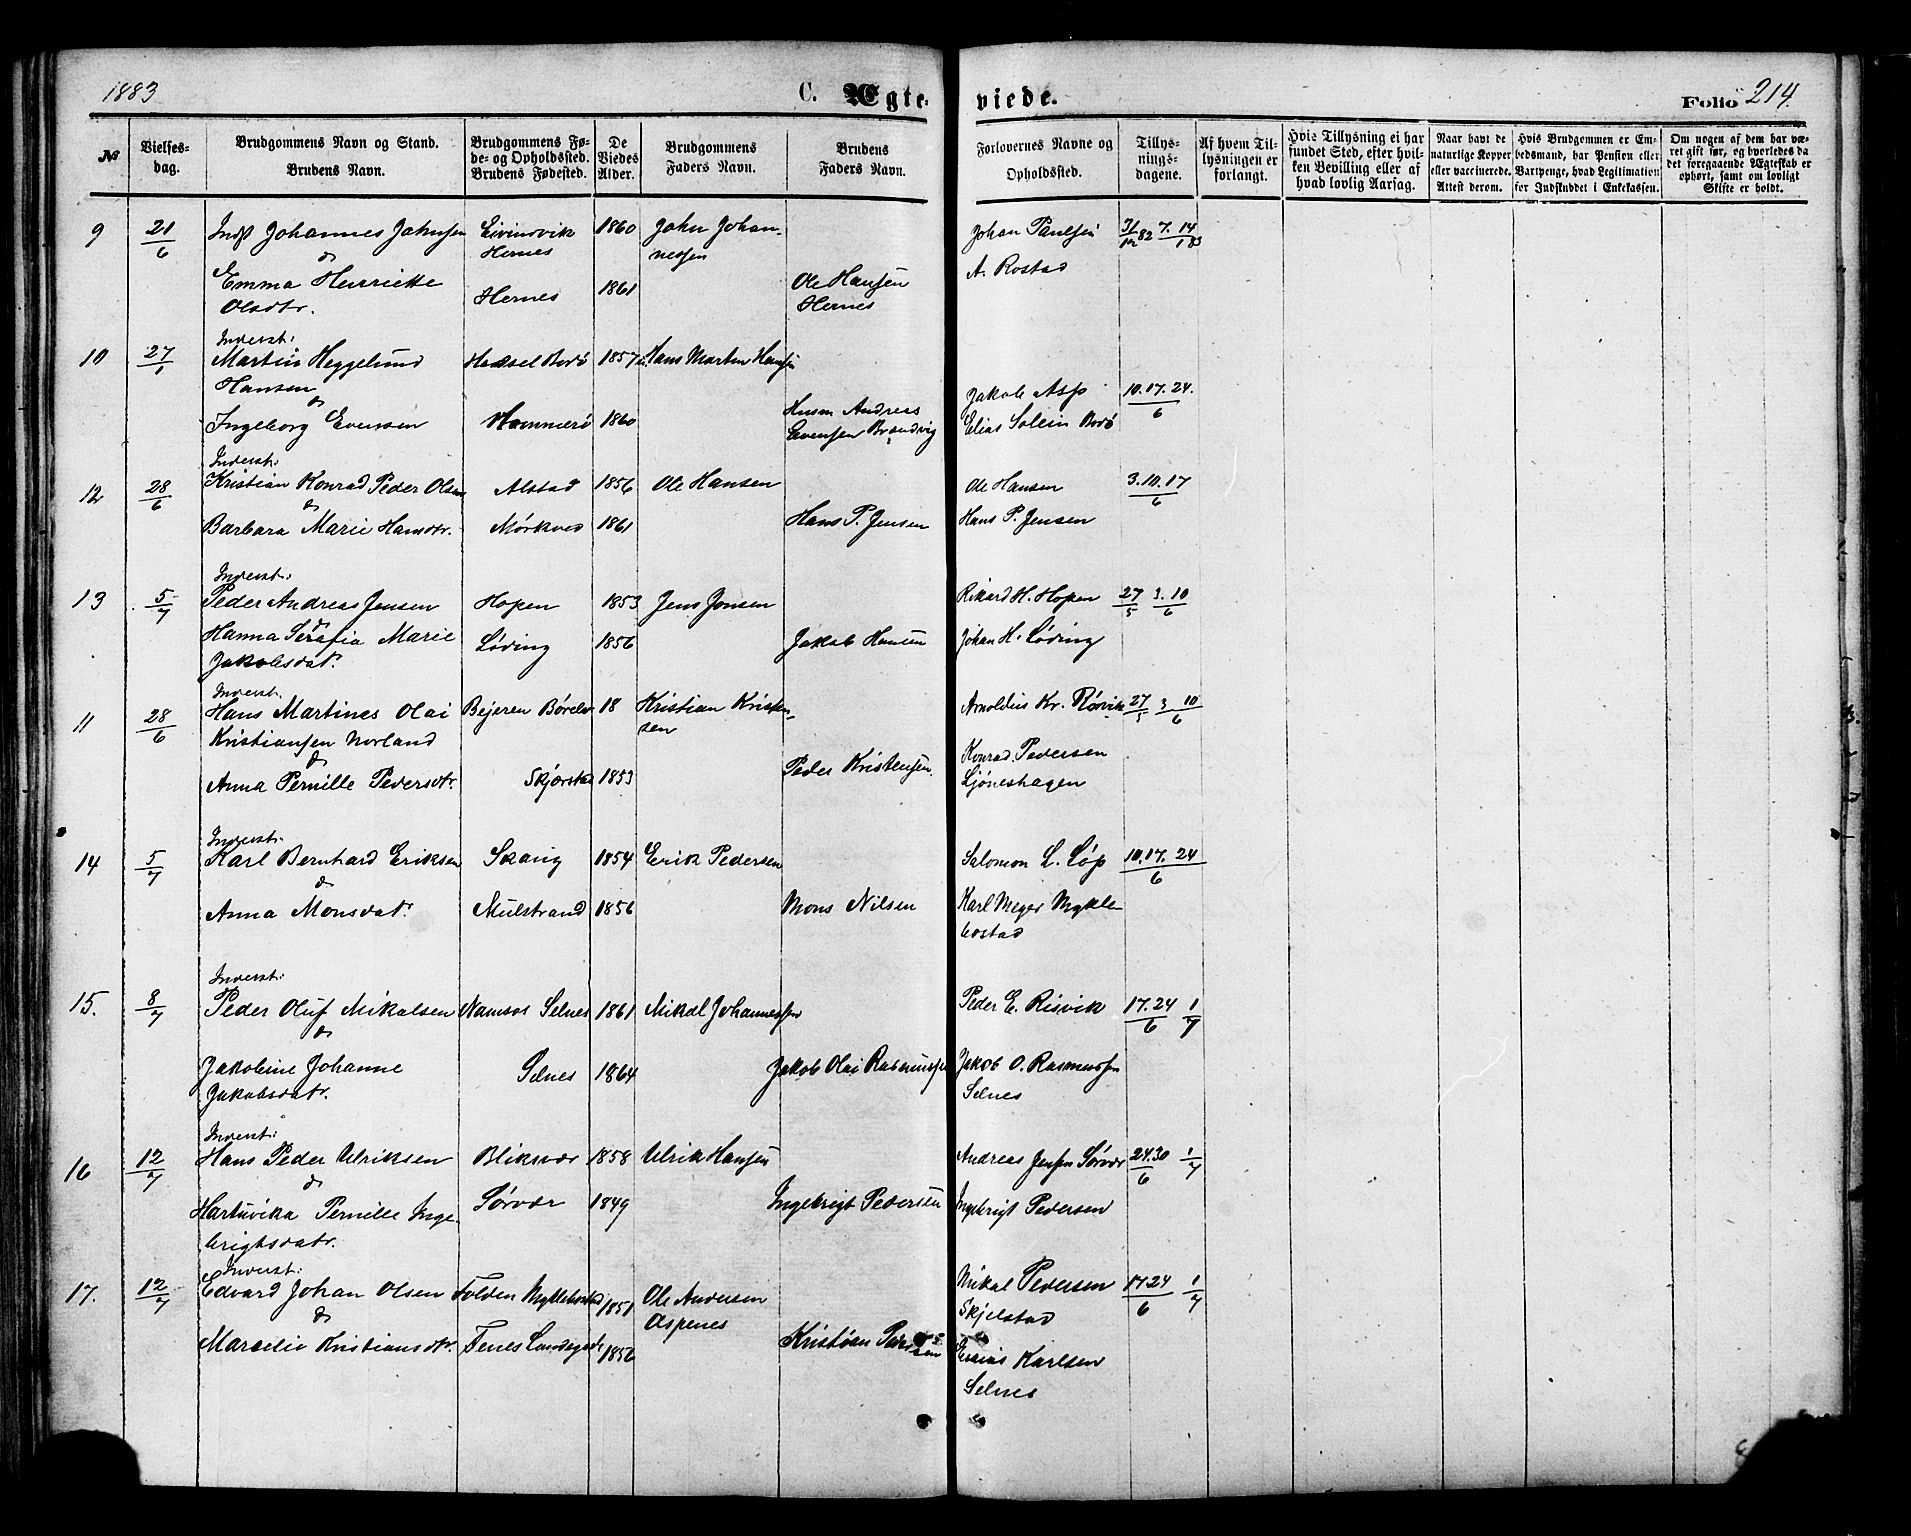 1883
C. Ægte-
viede.
Folio 214.
№
Vielses-
dag.
Brudgommens Navn og Stand.
Brudens Navn.
Brudgommens Fø-
de- og Opholdssted.
Brudens Fødested.
De
Viedes
Alder.
Brudgommens
Faders Navn.
Brudens
Faders Navn.
Forlovernes Navne og
Opholdssted.
Tillys-
nings-
dagene.
Af hvem Til-
lysningen er
forlangt.
Hvis Tillysning ei har
fundet Sted, efter hvil-
ken Bevilling eller af
hvad lovlig Aarsag.
Naar havt de
naturlige Kopper
eller vaccinerede.
Attest derom.
Hvis Brudgommen er Em-
bedsmand, har Pension eller
Vartpenge, hvad Legitimation
for Indskuddet i Enkekassen.
Om nogen af dem har væ-
ret gift før, og hvorledes da
det foregaaende Ægteskab er
ophørt, samt om lovligt
Skifte er holdt.
9 21/6 Johannes Johnsen Hernes 1860 John Johan-
nessen Johan Paulsen 31/12 82 7. 14/1 83
& A. Rostad
Emma Henriette Hernes 1861 Ole Hansen
Olsdtr. Hernes
Inderst:
10 27/ Martin Heggelund Bodø 1857 Hans Martin Hansen
Hansen Jakob Asp 10. 17. 24./6
&
Ingeborg Evensen Hammerø 1860 Andreas
Evensen Brandvig Elias Solein Bodø
Inderst:
12 28/6 Kristian Konrad Peder Olsen Alstad 1856 Ole Hansen Ole Hansen 3. 10. 17/6
&
Barbara Marie Hansdtr. Mørkved 1861 Hans P. Jensen Hans P. Jensen
Inderst:
13 5/7 Peder Andreas Jensen Hopen 1853 Jens Jonsen Rikard H. Hopen 27/5 3. 10/6
&
Hanna Serafia Marie Løding 1856 Jakob Hansen Johan H. Løding
Jakobsdat.
Inderst.
11 28/6 Hans Martines Olai Bejeren 18 Kristian Kristen-
sen Arnoldus Kr. Rørvik 27/5 3 10/6
Kristiansen Norland
& Konrad Pedersen
Anna Pernille Pedersdtr. Skjørstad 1853 Peder Kristensen. Ljøneshagen
Inderst:
14 5/7 Karl Bernhard Eriksen Skaug 1854 Erik Pedersen Salomon L. Løp 10. 17. 24/6
&
Anna Monsdat. Mulstrand 1856 Mons Nilsen Karl Meyer Mykle-
bostad
Inderst:
15. 8/7 Peder Oluf Mikalsen Namsos Selnes 1861 Mikal Johannessen Peder E. Risvik 17. 24/6 1/7
&
Jakobine Johanne Selnes 1864 Jakob Olai Rasmussen Jakob O. Rasmussen
Jakobsdatr. Selnes
Inderst:
16 12/7 Hans Peder Ulriksen Bliksvær 1858 Ulrik Hansen Andreas Jensen Sørvær 24. 30/6 1/7
&
Hartuvika Pernille Inge- Sørvær 1849 Ingebrigt Pedersen Ingebrigt Pedersen
brigtsdatr.
Inderst:
17. 12/7 Edvard Johan Olsen Folden Myklebostad 1851 Ole Andersen Mikal Pedersen 17 24/6 1/7
& Aspenes Skjelstad
Marselie Kristiansdtr. Fenes Landegode 1856 Kristian Peder-
sen Karlsen
Selnes